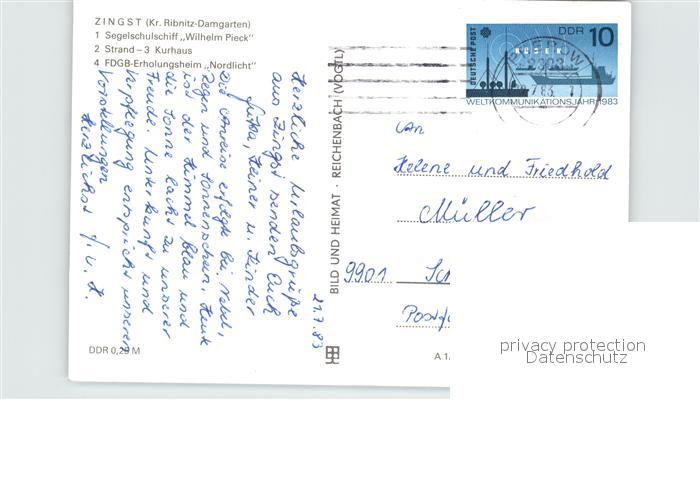 ZINGST (Kr. Ribnitz-Damgarten)
1 Segelschulschiff „Wilhelm Pieck"
2 Strand – 3 Kurhaus
4 FDGB-Erholungsheim „Nordlicht"
21.7.83
Herzliche Urlaubsgrüße
aus Zingst senden Euch
Jutta, Heiner u. Kinder
Die Anreise erfolgte bei Nebel,
Regen und Sonnenschein. Heute
ist der Himmel blau und
die Sonne lacht zu unserer
Freude. Unterkunft und
Verpflegung entspricht unseren
Vorstellungen
Herzlichst J. u. H.
DDR 0,20 M
BILD UND HEIMAT · REICHENBACH (VOGTL)
DEUTSCHE POST
DDR 10
WELTKOMMUNIKATIONSJAHR 1983
An
Helene und Friedhold
Müller
9901
A 1/
privacy protection
Datenschutz